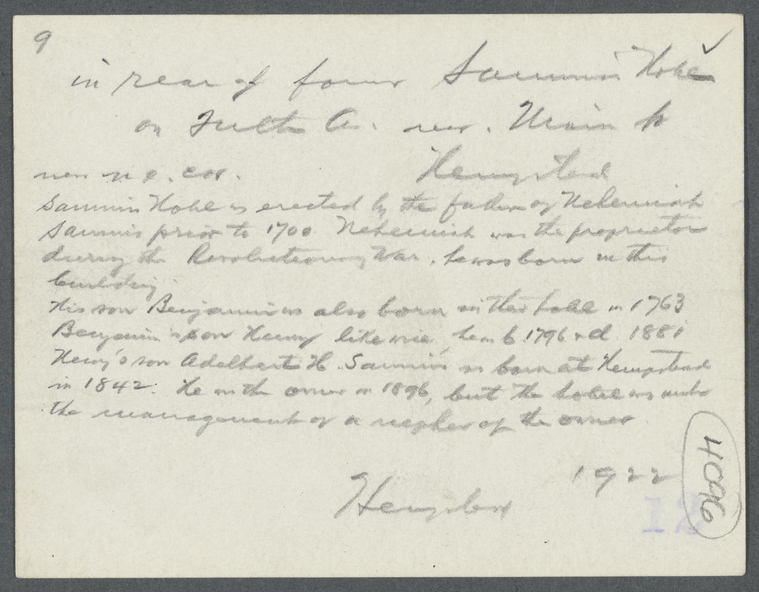 9
in rear of former Sammis Hotel
on Fulton Av. near Main St
near n.e. cor.
Hempstead
Sammis Hotel was erected by the father of Nehemiah
Sammis prior to 1700 Nehemiah was the proprietor
during the Revolutionary War. he was born in this
building.
His son Benjamin was also born in the hotel in 1763
Benjamin's son Henry likewise, he b 1796 & d 1881
Henry's son Adelbert H. Sammis was born at Hempstead
in 1842. He was the owner in 1896, but the hotel was under
the management of a nephew of the owner
1922
Hempstead
4096
12